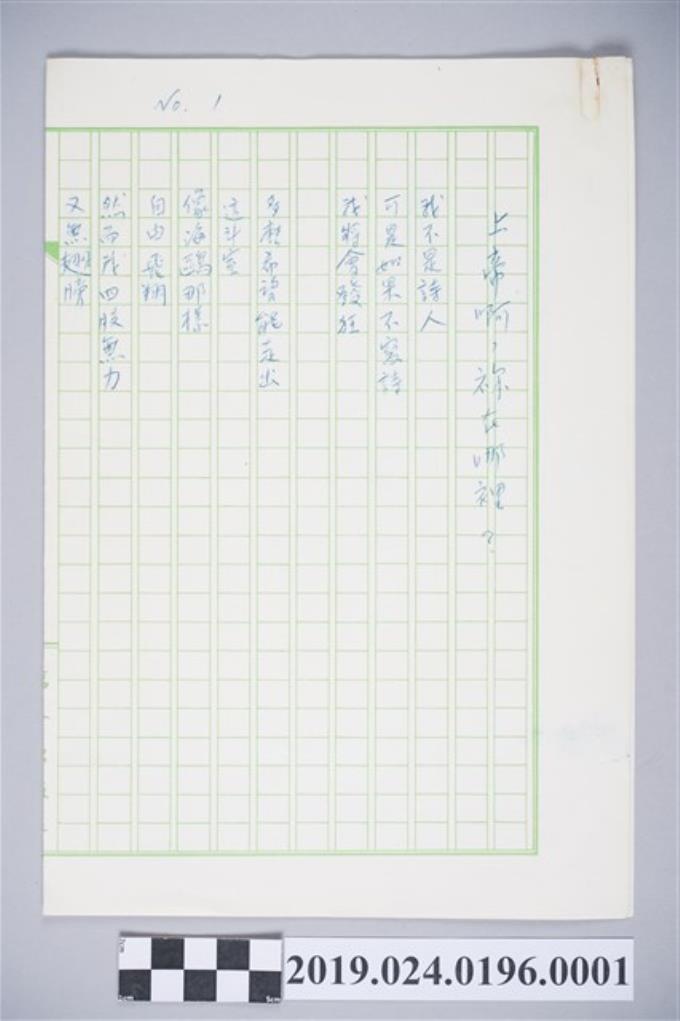 No. 1
上帝啊，祢在哪裡？
我不是詩人
可是如果不寫詩
我將會發狂
多麽希望能走出
這斗室
像海鷗那樣
自由飛翔
然而我四肢無力
又無翅膀
cm
5cm
2019.024.0196.0001